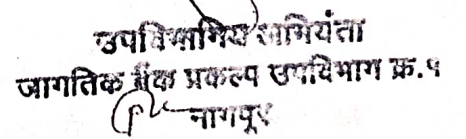 उपविभागिय अभियंता
जागतिक बँक प्रकल्प उपविभाग क्र.१
नागपूर